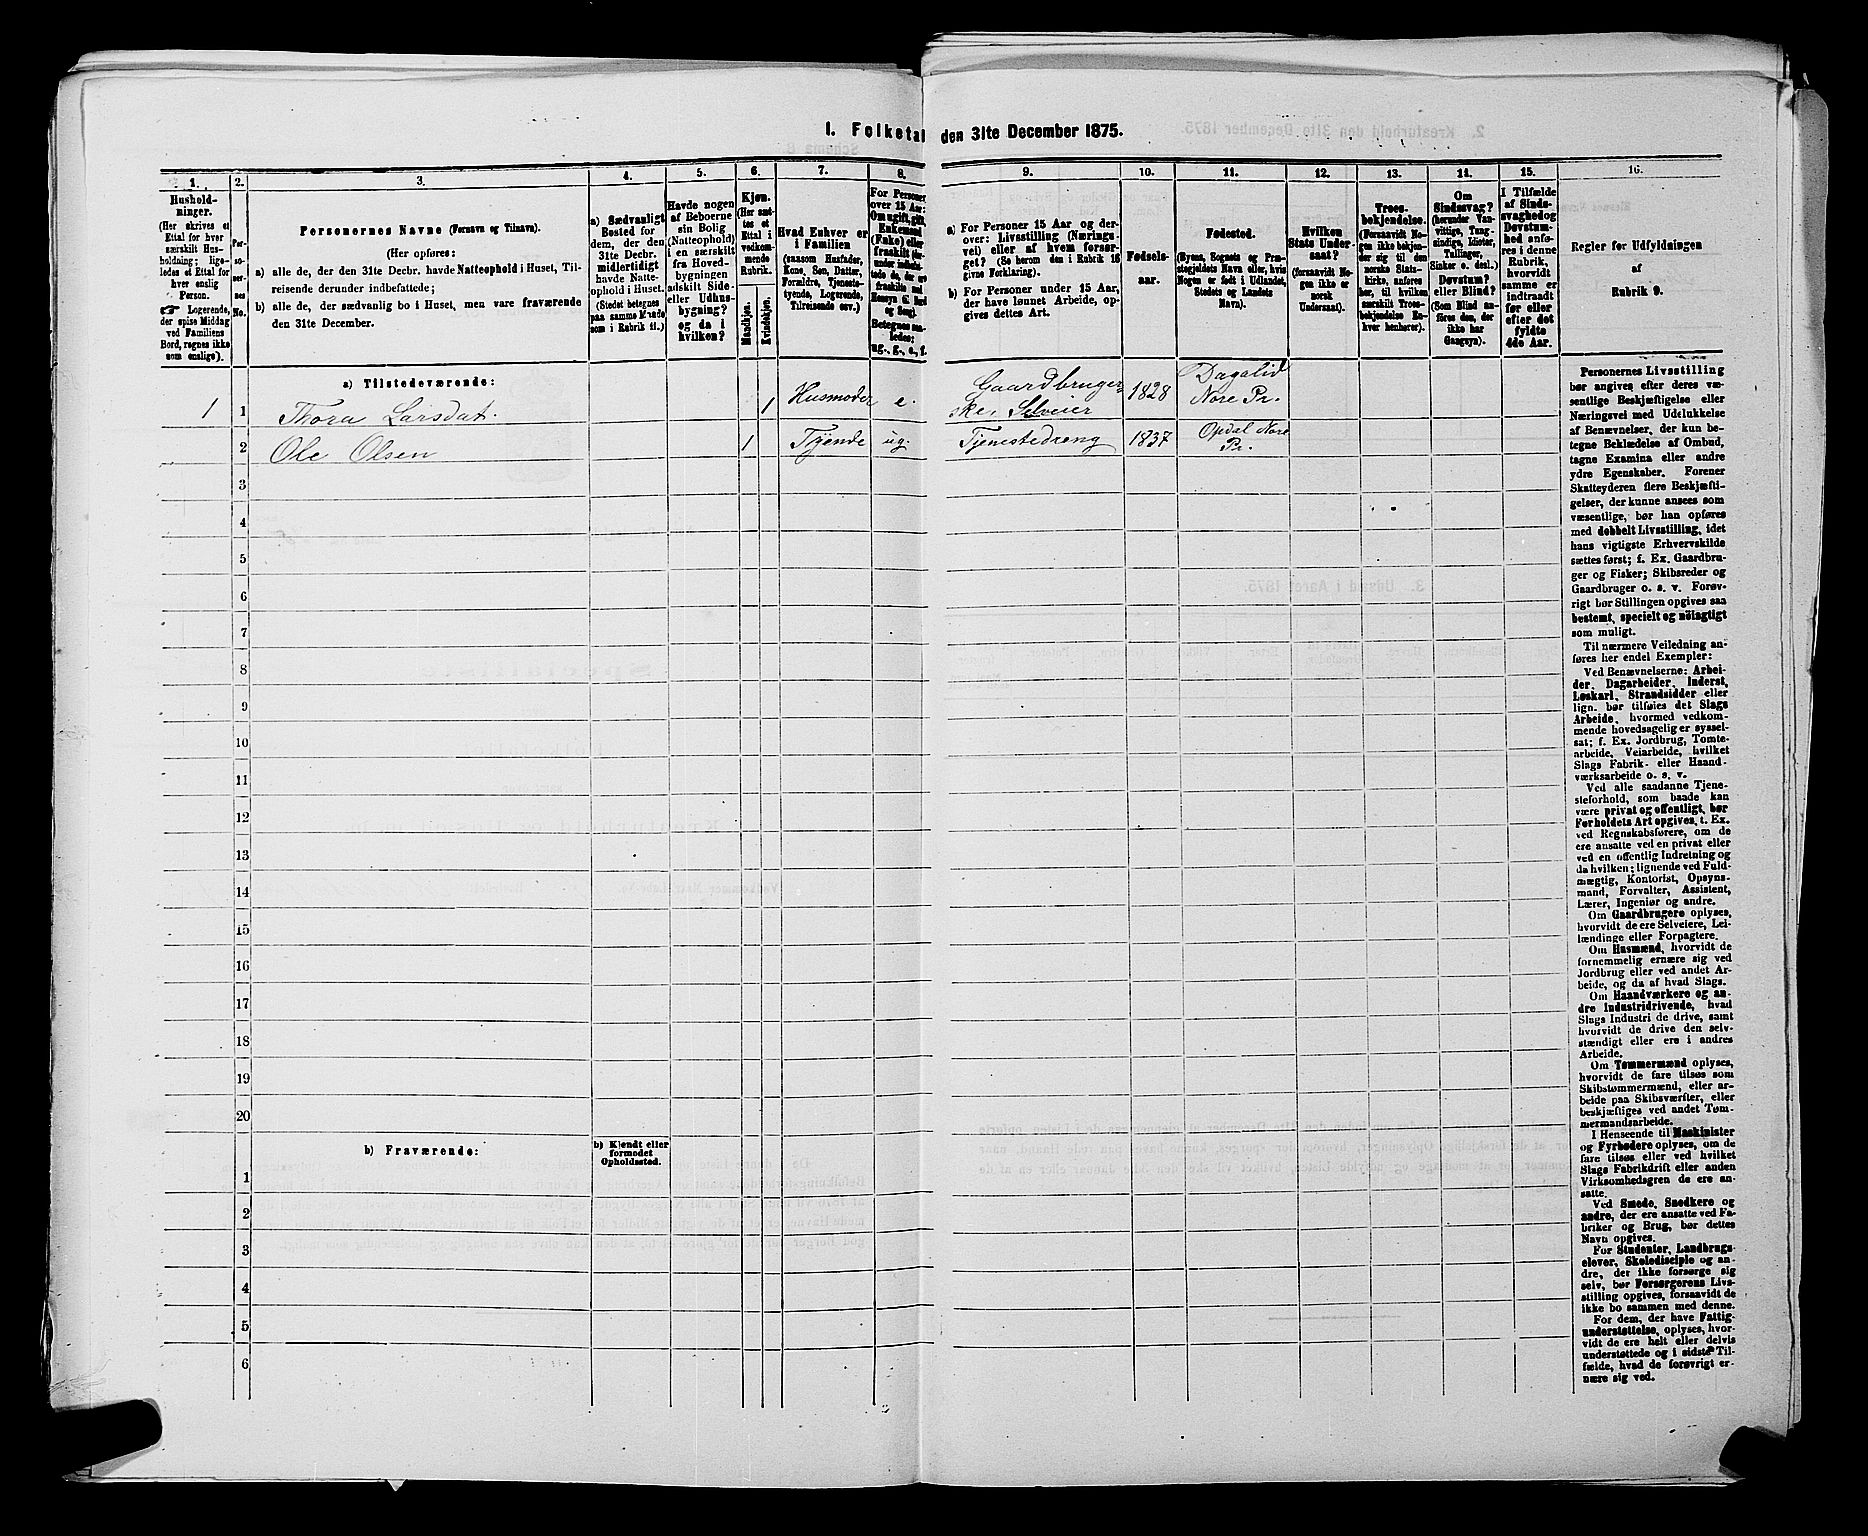 I. Folketal den 31te December 1875.
1.
Husholdninger.
(Her skrives et
Ettal for hver
særskilt Husholdning; ligeledes et Ettal for
hver enslig
Person.
☞ Logerende,
der spise Middag
ved Familiens
Bord, regnes ikke
som enslige).
2.
Personernes No.
3.
Personernes Navne (Fornavn og Tilnavn).
(Her opføres:
a) alle de, der den 31te Decbr. havde Natteophold i Huset, Tilreisende derunder indbefattede;
b) alle de, der sædvanlig bo i Huset, men vare fraværende
den 31te December.
4.
a) Sædvanligt
Bosted for
dem, der den
31te Decbr.
midlertidigt
havde Natteophold i Huset.
(Stedet betegnes
paa samme Maade
som i Rubrik 11.)
5.
Havde nogen
af Beboerne
sin Bolig
(Natteophold)
i en særskilt
fra Hovedbygningen
adskilt Side-
eller Udhusbygning?
og da i
hvilken?
6.
Kjøn.
(Her sættes et
Ettal i
vedkommende
Rubrik.
Mandkjøn.
Kvindekjøn.
7.
Hvad Enhver er
i Familien
(saasom Husfader,
Kone, Søn, Datter,
Forældre, Tjenestetyende, Logerende,
Tilreisende osv.)
8.
For Personer
over 15 Aar:
Om ugift, gift,
Enkemand
(Enke) eller
fraskilt
Betegnes saaledes:
ug., g., e., f.
9.
a) For Personer 15 Aar og derover: Livsstilling (Næringsvei) eller af hvem forsørget? (Se herom den i Rubrik 16
givne Forklaring).
b) For Personer under 15 Aar,
der have lønnet Arbeide, opgives dettes Art.
10.
Fødselsaar.
11.
Fødested.
(Byens, Sognets og Præstegjeldets Navn eller, hvis
Nogen er født i Udlandet,
Stedets og Landets
Navn).
12.
Hvilken
Stats Undersaat?
(forsaavidt Nogen ikke er
norsk
Undersaat).
13.
Troesbekjendelse.
(Forsaavidt Nogen ikke bekjender sig til den
norske Statskirke, anføres
her, til hvilken
særskilt Troesbekjendelse Enhver henhører).
14.
Om
Sindssvag?
(herunder Vanvittige, Tungsindige, Idioter,
Tullinger,
Sinker o. desl.)
Døvstum?
eller Blind?
(Som Blind anføres den, der
ikke har
Gangsyn).
15.
I Tilfælde
af Sindssvaghed og
Døvstumhed anføres i denne
Rubrik,
hvorvidt
samme er
indtraadt
før eller
efter det
fyldte
4de Aar.
16.
Regler for Udfyldningen
af
Rubrik 9.
a) Tilstedeværende:
1 1 Thora Larsdat. 1 Husmoder e. Gaardbrugerske, Selveier 1828 Dagalid Nore Pr.
2 Ole Olsen 1 Tyende ug. Tjenestedreng 1837 Opdal Nore Pr.
3
4
5
6
7
8
9
10
11
12
13
14
15
16
17
18
19
20
b) Fraværende:
b) Kjendt eller
formodet
Opholdssted.
1
2
3
4
5
6
Personernes Livsstilling
bør angives efter deres væsentlige Beskjæftigelse eller
Næringsvei med Udelukkelse
af Benævnelser, der kun betegne Beklædelse af Ombud,
tagne Examina eller andre
ydre Egenskaber. Forener
Skatteyderen flere Beskjæftigelser, der kunne ansees som
væsentlige, bør han opføres
med dobbelt Livsstilling, idet
hans vigtigste Erhvervskilde
sættes først; f. Ex. Gaardbruger og Fisker; Skibsreder og
Gaardbruger o. s. v. Forøvrigt bør Stillingen opgives saa
bestemt, specielt og nöiagtigt
som muligt.
Til nærmere Veiledning anføres her endel Exempler:
Ved Benævnelserne: Arbeider, Dagarbeider, Inderst,
Løskarl, Strandsidder eller
lign. bør tilføies det Slags
Arbeide, hvormed vedkommende hovedsagelig er sysselsat; f. Ex. Jordbrug, Tomtearbeide, Veiarbeide, hvilket
Slags Fabrik- eller Haandværksarbeide o. s. v.
Ved alle saadanne Tjenesteforhold, som baade kan
være privat og offentligt, bør
Forholdets Art opgives, t. Ex.
ved Regnskabsførere, om de
ere ansatte ved en privat eller
ved en offentlig Indretning og
da hvilken; lignende ved Fuldmægtig, Kontorist, Opsynsmand, Forvalter, Assistent,
Lærer, Ingeniør og andre.
Om Gaardbrugere oplyses,
hvorvidt de ere Selveiere, Leilændinge eller Forpagtere.
Om Husmænd, hvorvidt de
fornemmelig ernære sig ved
Jordbrug eller ved andet Arbeide, og da af hvad Slags.
Om Haandværkere og andre Industridrivende, hvad
Slags Industri de drive, samt
hvorvidt de drive den selvstændigt eller ere i andres
Arbeide.
Om Tømmermænd oplyses,
hvorvidt de fare tilsøs som
Skibstømmermænd, eller arbeide paa Skibsværfter, eller
beskjæftiges ved andet Tømmermandsarbeide.
I Henseende til Maskinister
og Fyrbødere oplyses, om de
fare tilsøs eller ved hvilket
Slags Fabrikdrift eller anden
Virksomhedsgren de ere ansatte.
Ved Smede, Snedkere og
andre, der ere ansatte ved Fabriker og Brug, bør dettes
Navn opgives.
For Studenter, Landbrugselever, Skoledisciple og andre, der ikke forsørge sig
selv, bør Forsørgerens Livsstilling opgives, forsaavidt de
ikke bo sammen med denne.
For dem, der have Fattigunderstøttelse, oplyses, hvorvidt de ere helt eller delvis
understøttede og i sidste Tilfælde, hvad de forøvrigt ernære sig ved.